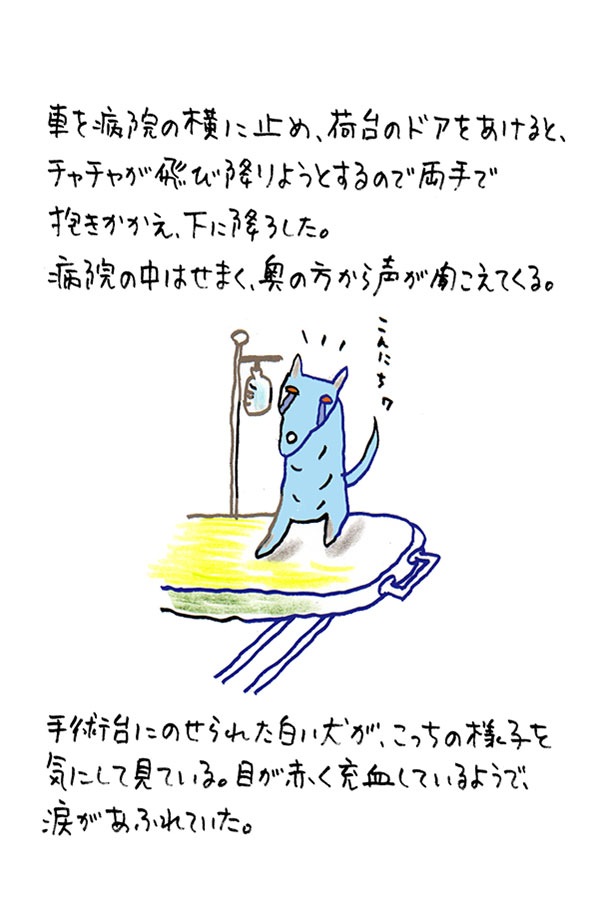 車を病院の横に止め、荷台のドアをあけると、
チャチャが飛び降りようとするので両手で
抱きかかえ、下に降ろした。
病院の中はせまく、奥の方から声が聞こえてくる。
こんにちワ
手術台にのせられた白い犬が、こっちの様子を
気にして見ている。目が赤く充血しているようで、
涙があふれていた。